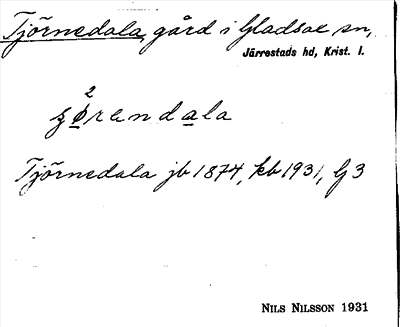 Tjörnedala, gård i Gladsax sn,
Järrestads hd, Krist. l.
2
Tjörnedala jb 1874, kb 1931, Gj 3
NILS NILSSON 1931